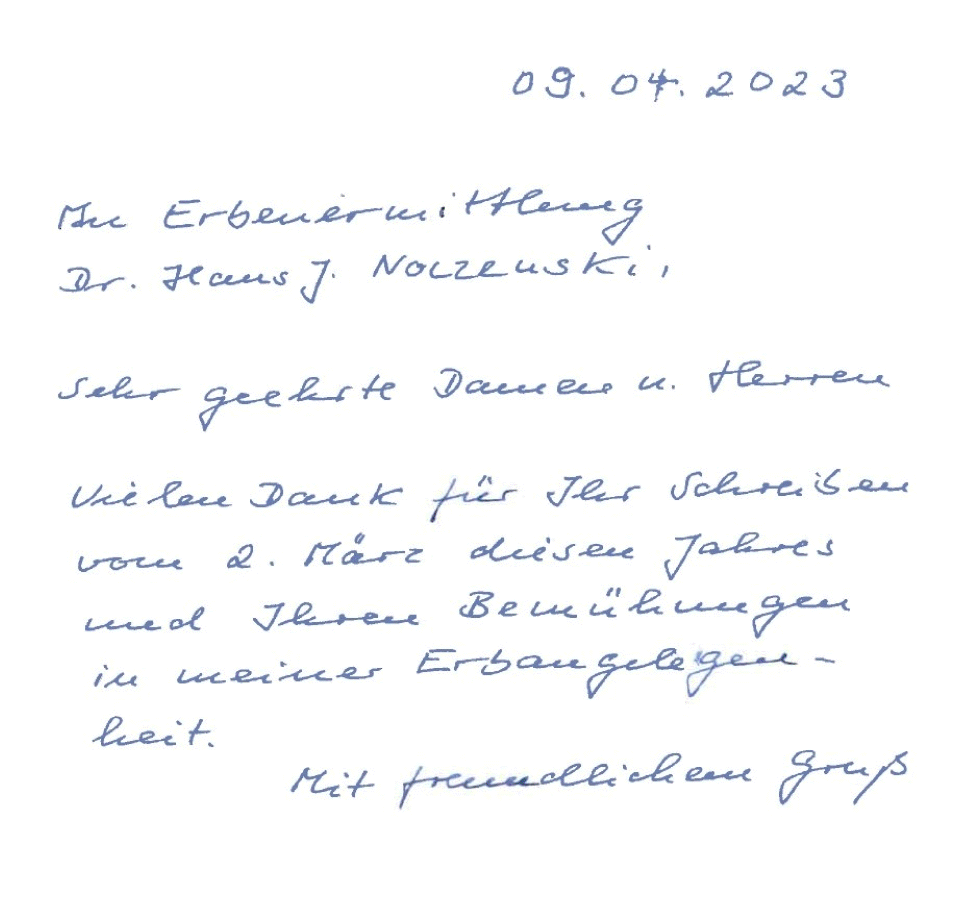 09. 04. 2023
An Erbenermittlung
Dr. Hans J. Noczenski,
Sehr geehrte Damen u. Herren
Vielen Dank für Ihr Schreiben
vom 2. März diesen Jahres
und Ihren Bemühungen
in meiner Erbangelegen-
heit.
Mit freundlichem Gruß